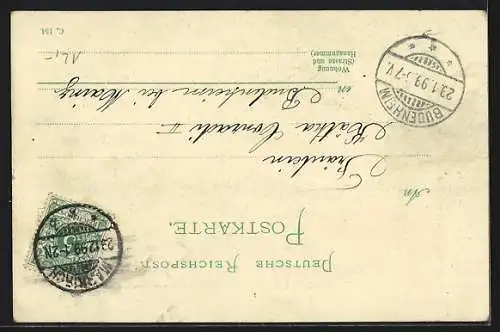 DEUTSCHE REICHSPOST.
POSTKARTE.
An
Fräulein
Kätha Conradi II
in Budenheim bei Mainz
Wohnung
(Strasse und
Hausnummer)
C. 154
BUDENHEIM
23.1.99. 5-7 V.
5
1-2N